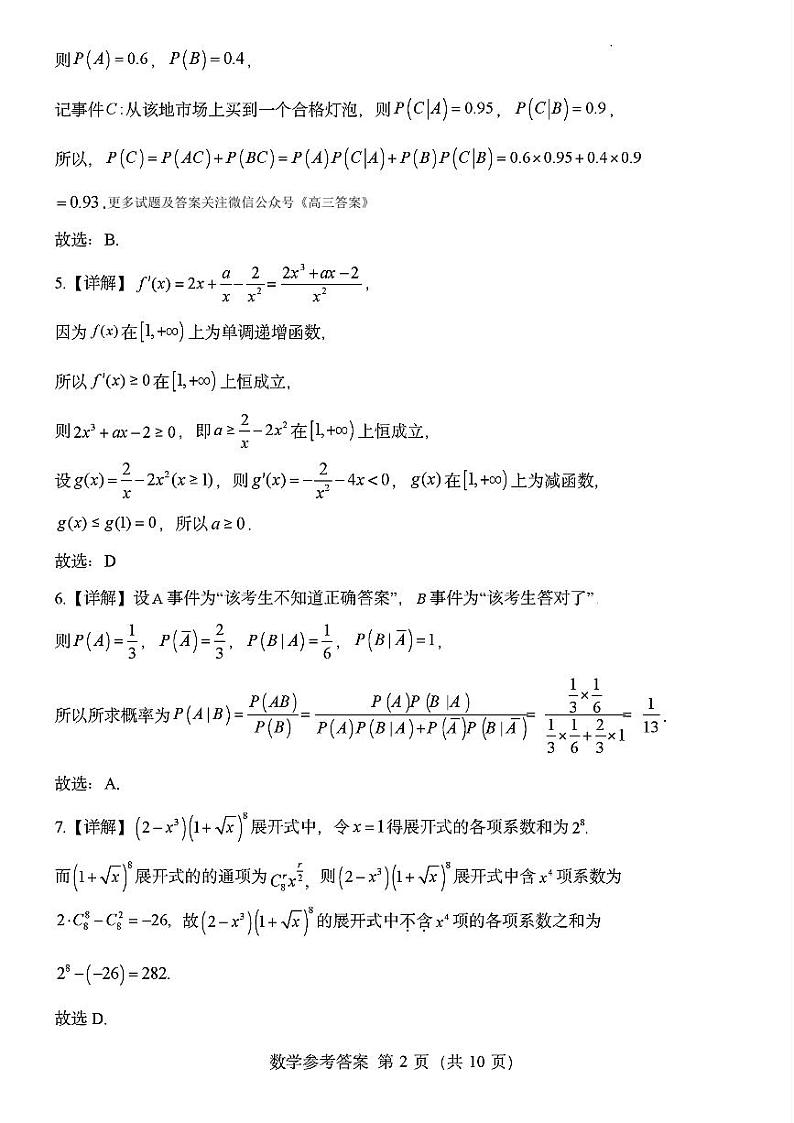 则P(A)=0.6，P(B)=0.4，
记事件C:从该地市场上买到一个合格灯泡，则P(C|A)=0.95，P(C|B)=0.9，
所以，P(C)=P(AC)+P(BC)=P(A)P(C|A)+P(B)P(C|B)=0.6×0.95+0.4×0.9
=0.93.更多试题及答案关注微信公众号《高三答案》
故选：B.
5.【详解】f′(x)=2x+a/x-2/x²=(2x³+ax-2)/x²，
因为f(x)在[1,+∞)上为单调递增函数，
所以f′(x)≥0在[1,+∞)上恒成立，
则2x³+ax-2≥0，即a≥2/x-2x²在[1,+∞)上恒成立，
设g(x)=2/x-2x²(x≥1)，则g′(x)=-2/x²-4x<0，g(x)在[1,+∞)上为减函数，
g(x)≤g(1)=0，所以a≥0.
故选：D
6.【详解】设A事件为“该考生不知道正确答案”，B事件为“该考生答对了”
则P(A)=1/3，P(A̅)=2/3，P(B|A)=1/6，P(B|A̅)=1，
所以所求概率为P(A|B)=P(AB)/P(B)=P(A)P(B|A)/(P(A)P(B|A)+P(A̅)P(B|A̅))=(1/3×1/6)/(1/3×1/6+2/3×1)=1/13.
故选：A.
7.【详解】(2-x³)(1+√x)⁸展开式中，令x=1得展开式的各项系数和为2⁸.
而(1+√x)⁸展开式的的通项为C₈ʳx^(r/2)，则(2-x³)(1+√x)⁸展开式中含x⁴项系数为
2·C₈⁸-C₈²=-26，故(2-x³)(1+√x)⁸的展开式中不含x⁴项的各项系数之和为
2⁸-(-26)=282.
故选D.
数学参考答案 第 2 页（共 10 页）